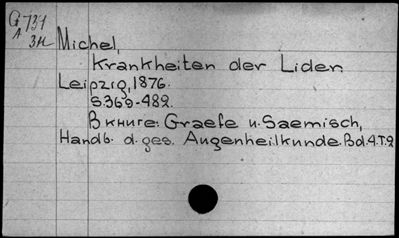 G 737
A 3н
Michel,
Krankheiten der Lider.
Leipzig, 1876.
S.369-482.
В книге: Graefe u. Saemisch,
Handb. d. ges. Augenheilkunde. Bd.4.T.2